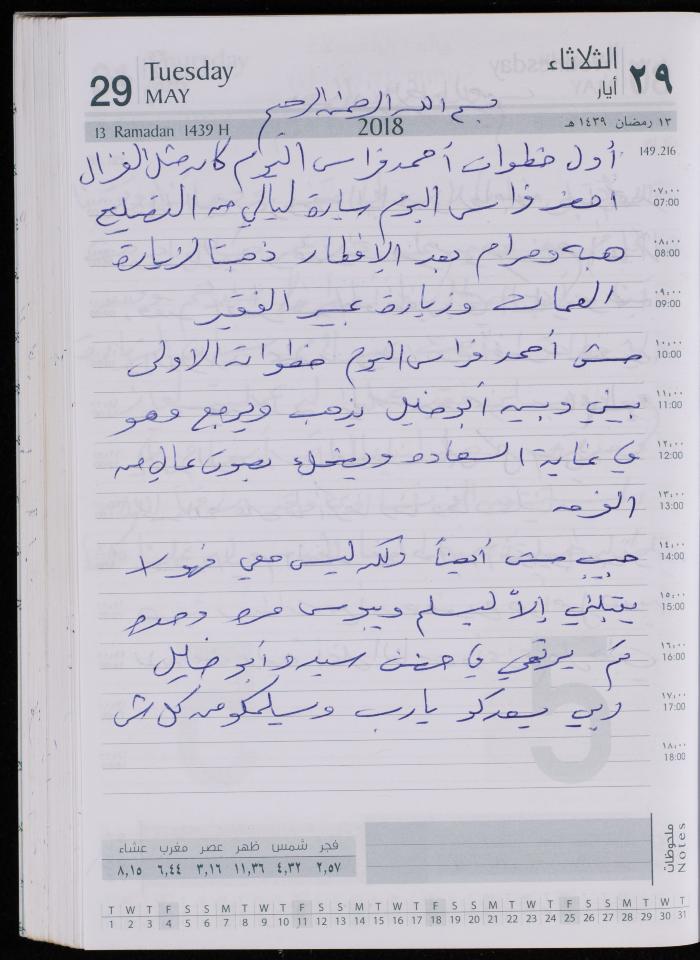 29 Tuesday MAY
الثلاثاء ٢٩ أيار
بسم الله الرحمن الرحيم
13 Ramadan 1439 H 2018 ١٣ رمضان ١٤٣٩ هـ
149.216
أول خطوات أحمد فراس اليوم كان مثل الغزال
٠٧:٠٠ 07:00
احضر فراس اليوم سيارة ليالي من التصليح
٠٨:٠٠ 08:00
هبه ومرام بعد الإفطار ذهبتا لزيارة
٠٩:٠٠ 09:00
العمات وزيارة عبير الفقير
١٠:٠٠ 10:00
مشى أحمد فراس اليوم خطواته الاولى
١١:٠٠ 11:00
بيني وبين أبو خليل يذهب ويرجع وهو
١٢:٠٠ 12:00
في غاية السعاده ويضحك بصوت عالي من
١٣:٠٠ 13:00
الفرحه
١٤:٠٠ 14:00
حبيب مشى أيضاً ولكن ليس معي فهو لا
١٥:٠٠ 15:00
يقبلني إلاّ ليسلم ويبوس مره وحده
١٦:٠٠ 16:00
ثم يرتمي في حضن سيدو أبو خليل
١٧:٠٠ 17:00
ربي يسعدكو يارب وسيلمكو من كل شر
١٨:٠٠ 18:00
5
ملحوظات Notes
فجر شمس ظهر عصر مغرب عشاء
٢,٥٧ ٤,٣٢ ١١,٣٦ ٣,١٦ ٦,٤٤ ٨,١٥
T W T F S S M T W T F S S M T W T F S S M T W T F S S M T W T
1 2 3 4 5 6 7 8 9 10 11 12 13 14 15 16 17 18 19 20 21 22 23 24 25 26 27 28 29 30 31